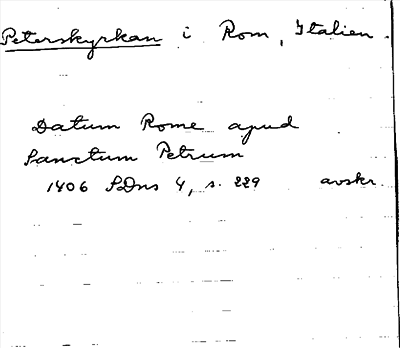 Peterskyrkan i Rom, Italien.
Datum Rome apud
Sanctum Petrum
1406 SDns 4, s. 229 avskr.